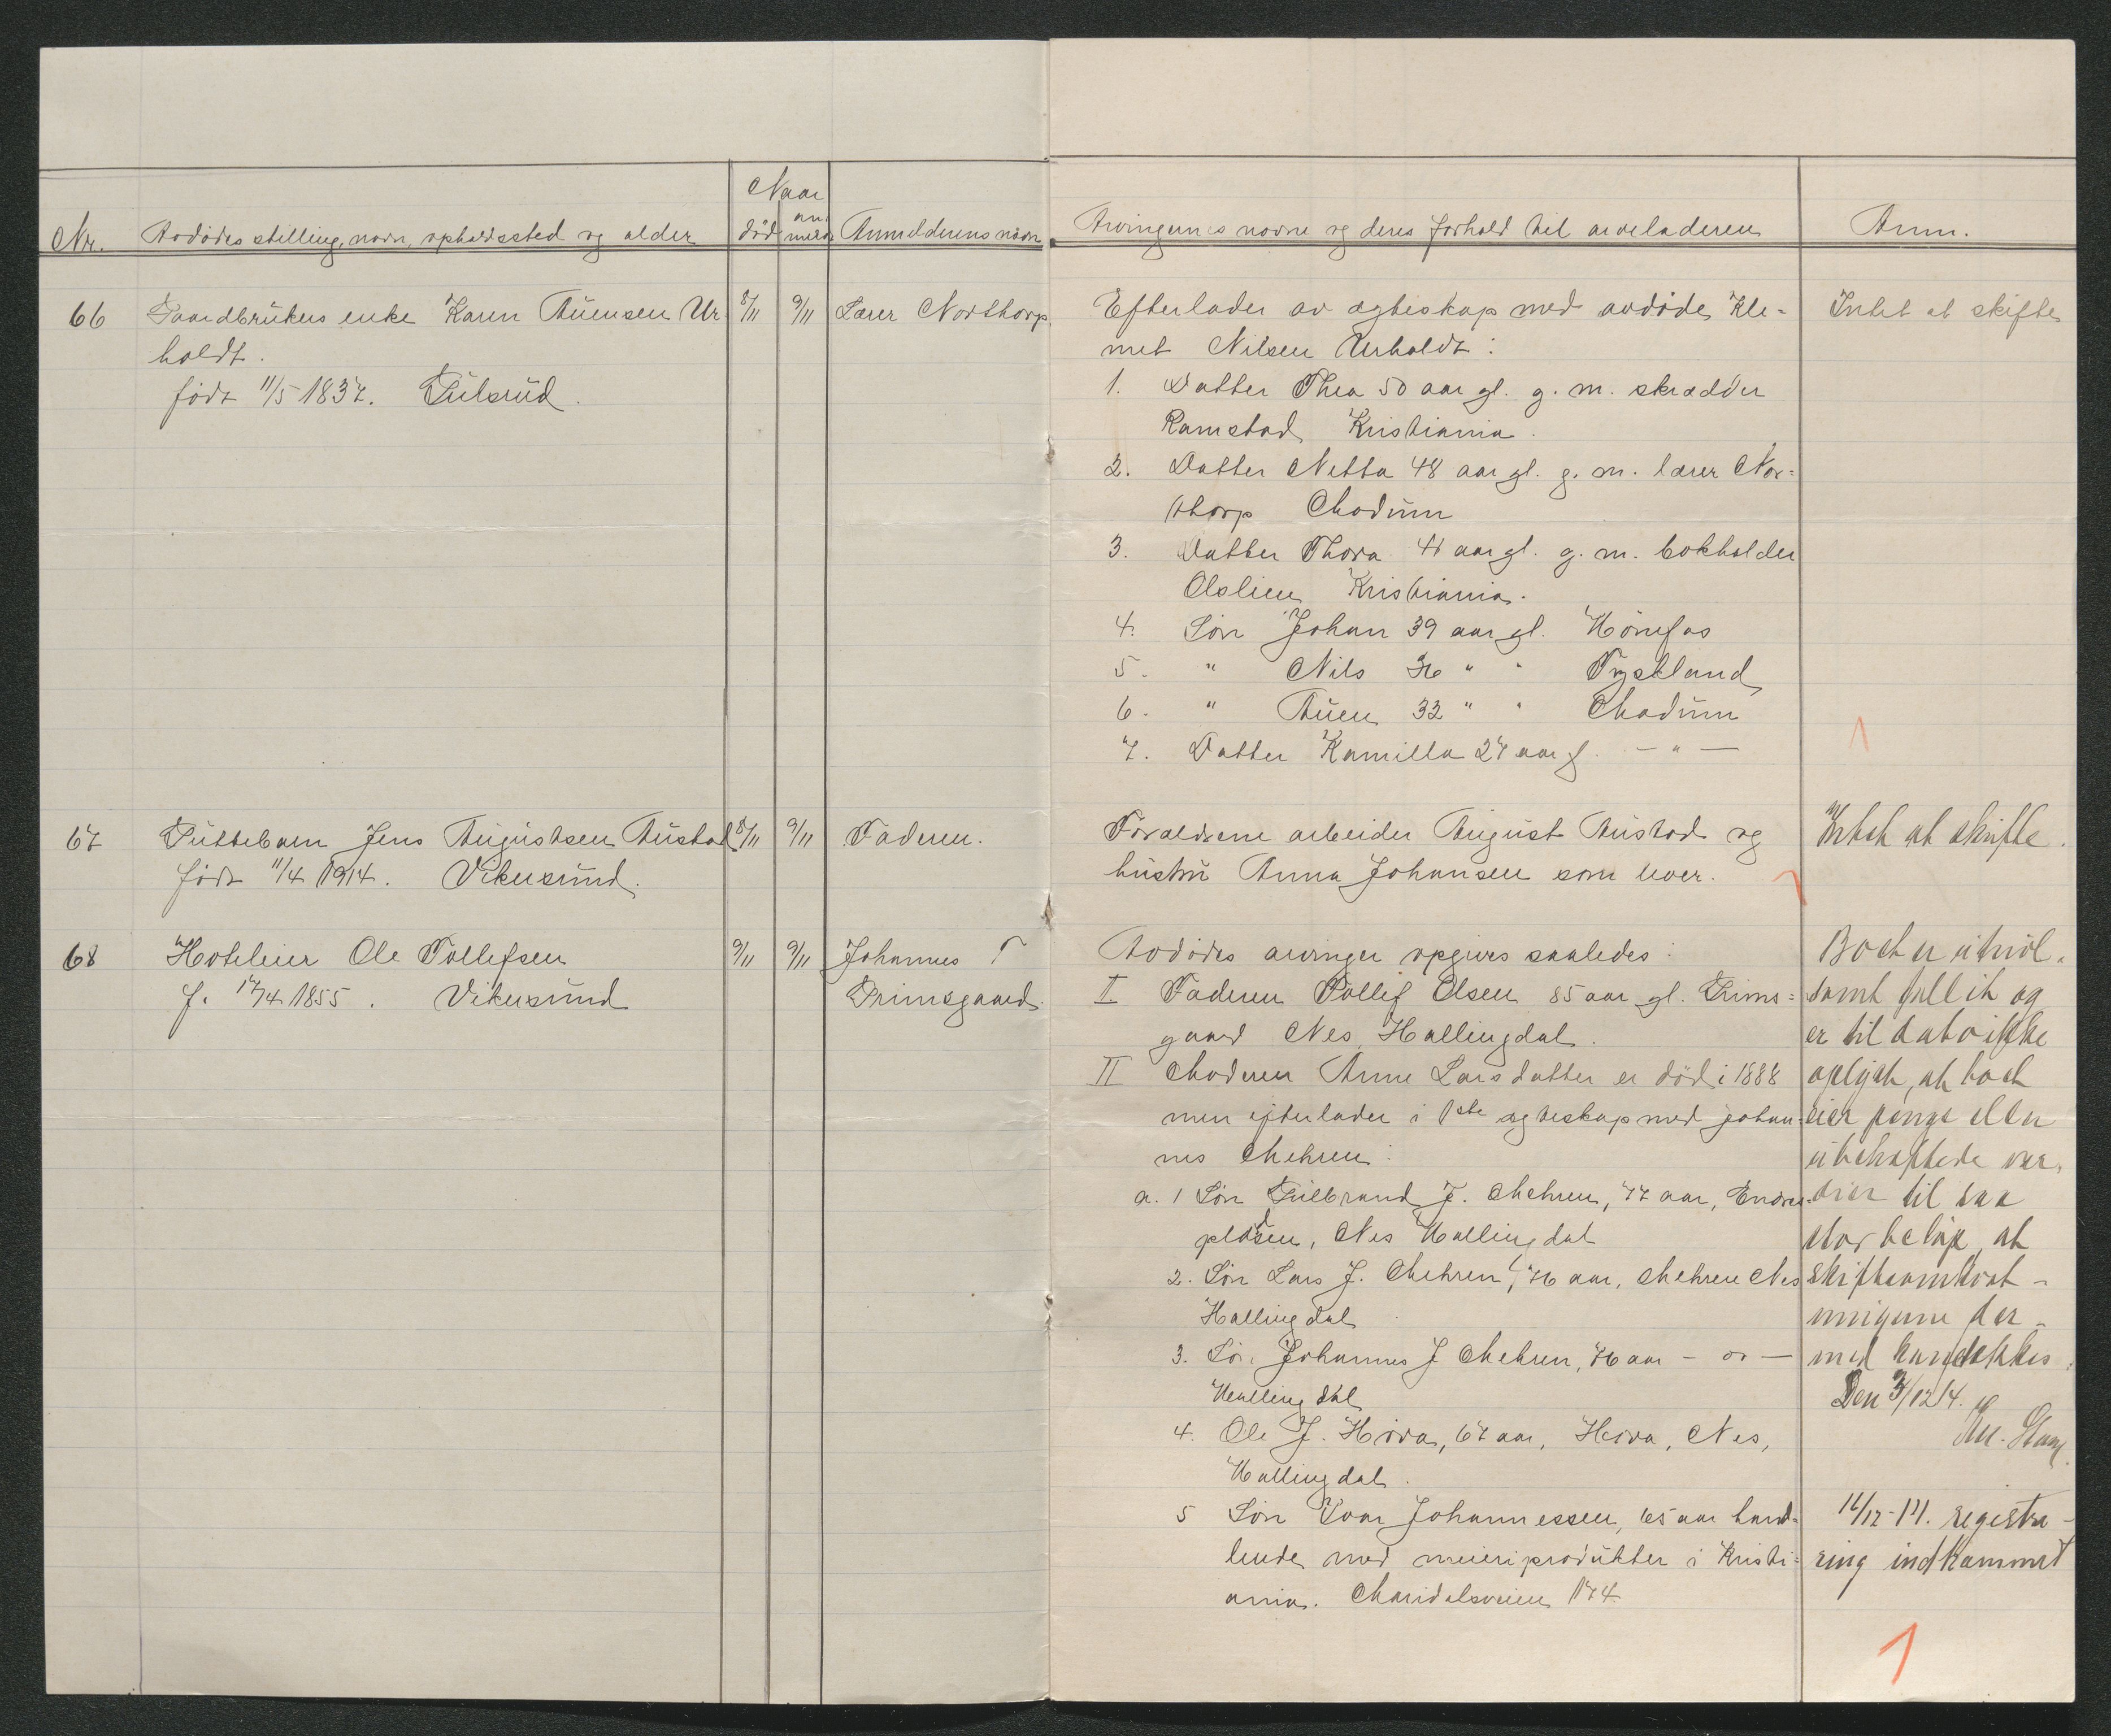 Naar
Nr. Avdødes stilling, navn, opholdssted og alder død an- meldt Anmelderens navn
66 Gaardbrukers enke Karen Auensen Ur- 8/11 9/11 Lærer Northorp
holdt.
født 11/5 1837. Gulsrud.
67 Guttebarn Jens Augustsen Austad 8/11 9/11 Faderen.
født 11/4 1914. Vikersund.
68 Hoteleier Ole Tollefsen 9/11 9/11 Johannes T
f. 17/4 1855. Vikersund Grimsgaard.
Arvingernes navne og deres forhold til arveladeren Anm.
Efterlader av egteskap med avdøde Kle-
met Nilsen Urholdt:
1. Datter Thea 50 aar gl. g. m. skrædder
Ramstad Kristiania.
2. Datter Netta 48 aar gl. g. m. lærer Nor-
thorp Modum
3. Datter Thora 41 aar gl. g. m. bokholder
Oslien Kristiania.
4. Søn Johan 39 aar gl. Hønefos
5. " Nils 36 " " Tyskland
6. " Auen 32 " " Modum
7. Datter Kamilla 27 aar g. - " -
Intet at skifte
1
Forældrene arbeider August Austad og
hustru Anna Johansen som lever.
Intet at skifte.
1
Avdødes arvinger opgives saaledes:
I Faderen Tollef Olsen 85 aar gl. Grims-
gaard Nes, Hallingdal.
II Moderen Anne Larsdatter er død i 1888
men efterlader i 1ste egteskap med Johan-
nes Mehren:
a. 1 Søn Gulbrand J. Mehren, 77 aar, Endre-
pladsen, Nes Hallingdal
2. Søn Lars J. Mehren, 76 aar, Mehren Nes
Hallingdal
3. Søn Johannes J Mehren, 76 aar - " -
Hallingdal
4. Ole J. Hova, 67 aar, Hova, Nes,
Hallingdal.
5 Søn Ivar Johannessen, 65 aar hand-
lende med meieriprodukter i Kristi-
ania. Maridalsveien 174
Boet er utvol-
somt fallit og
er til dato ikke
oplyst, at boet
eier penge eller
ubehæftede vær-
dier til saa
stor beløp, at
skifteomkost-
ningerne der-
med kan dækkes.
Den 3/12 14.
14/12-14. registre-
ring indkommet
1